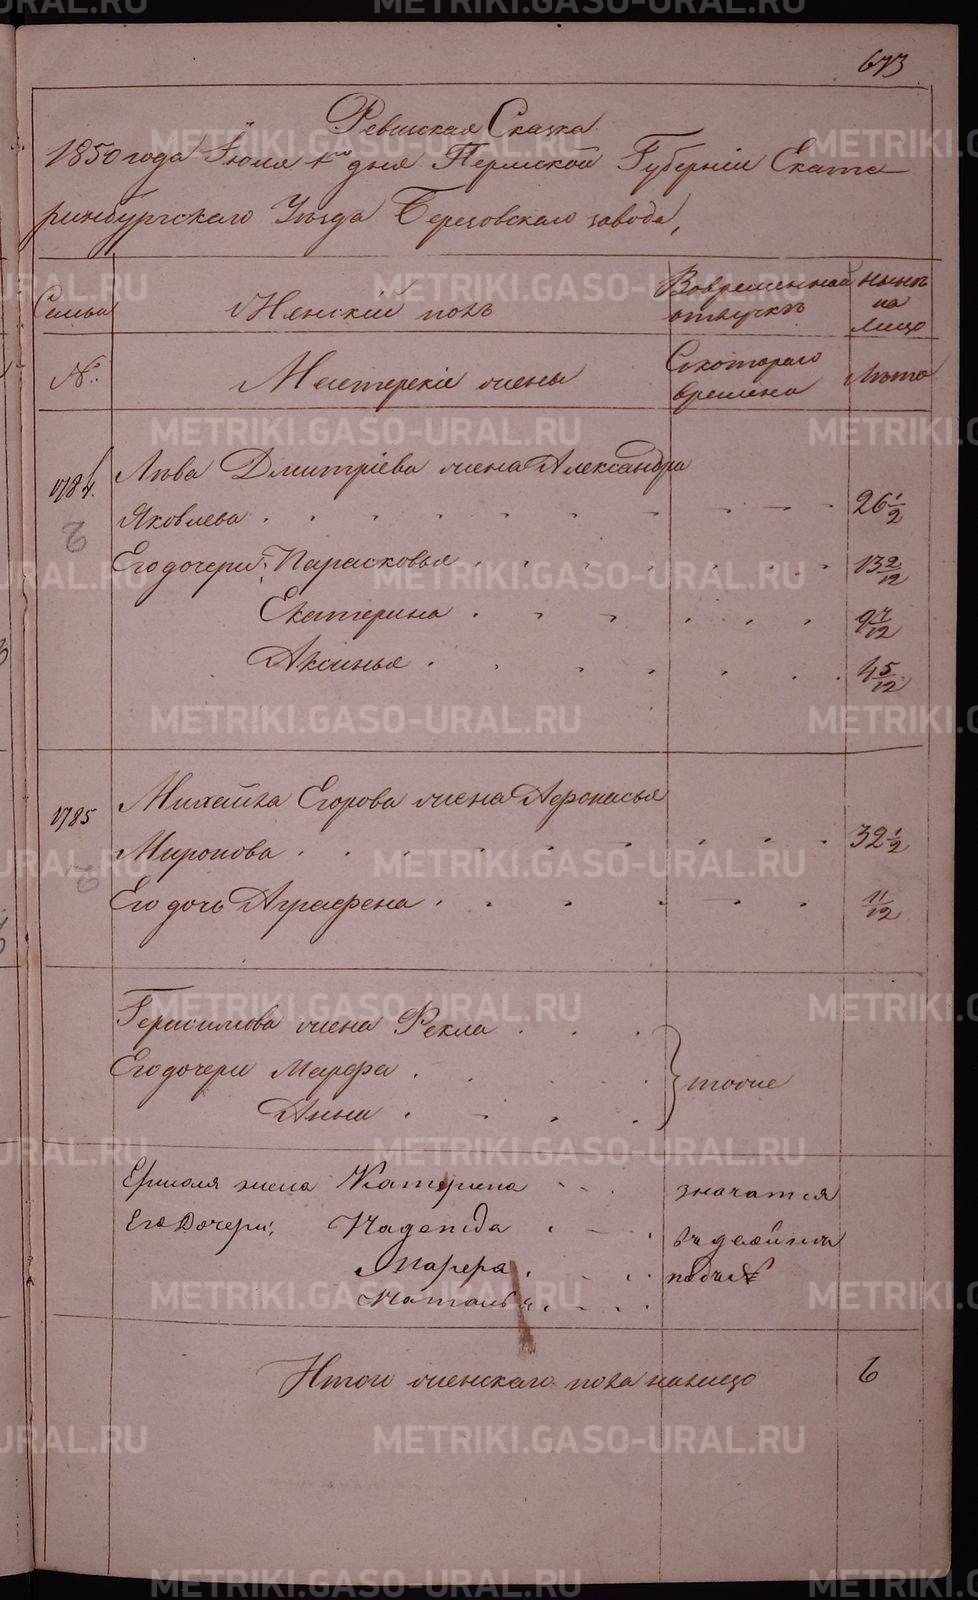 673
Ревижская Сказка
1850 года Июля 1го дня Пермской Губерніи Екате
ринбургскаго Уѣзда Березовскаго завода,
Семьи
Женскій полъ
Во временной отлучкѣ
Нынѣ на лицо
№.
Мастерскіе жены
Съ котораго времени
Лѣта
1784.
Льва Дмитріева жена Александра
Яковлева
26 1/2
Его дочери: Парасковья
13 2/12
Екатерина
9 7/12
Аксинья
4 5/12
1785
Михайла Егорова жена Афонасья
Миронова
32 1/2
Его дочь Аграфена
11/12
Герасимова жена Фекла
Его дочери Марфа
тоже
Анна
Ермола жена Катерина
значатся
Его Дочери, Надежда
въ двойнѣ
Марфа
Наталья
Итого женскаго пола налицо
6
METRIKI.GASO-URAL.RU